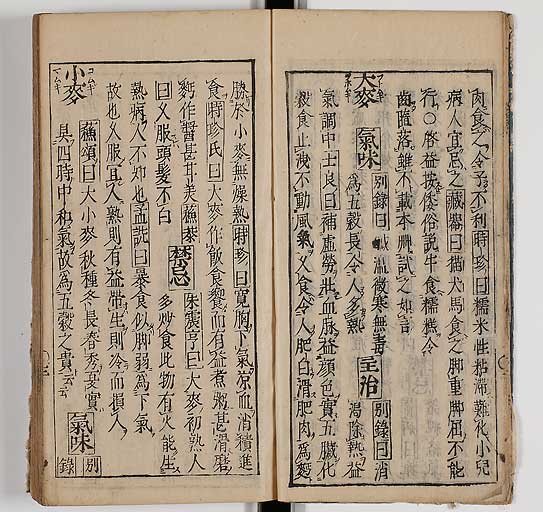 肉食之令子不利時珍曰糯米性粘滯難化小兒
病人宜忌之藏器曰猫犬馬食之脚重脚屈不能
行○啓益按倭俗說牛食糯糕令
齒隨落雖不載本艸試之如言
大麥 氣味 別錄曰鹹溫微寒無毒 主治 別錄曰消
渴除熱益
氣調中士良曰補虛勞壯血脉益顏色實五臟化
穀食止洩不動風氣久食令人肥白滑肥肉爲麪
勝於小麥無燥熱時珍曰寬胸下氣凉血消積進
食時珍氏曰大麥作飯食饗而有益煮粥甚滑磨
麪作醬甚甘美 禁忌 朱震亨曰大麥初熟人
多炒食此物有火能生
曰久服頭髮不白
熱病人不知也孟詵曰暴食似脚弱爲下氣
故也久服宜人熟則有益帶生則冷而損人
小麥 蘇頌曰大小麥秋種冬長春秀夏實
具四時中和氣故爲五穀之貴云云 氣味 別
錄